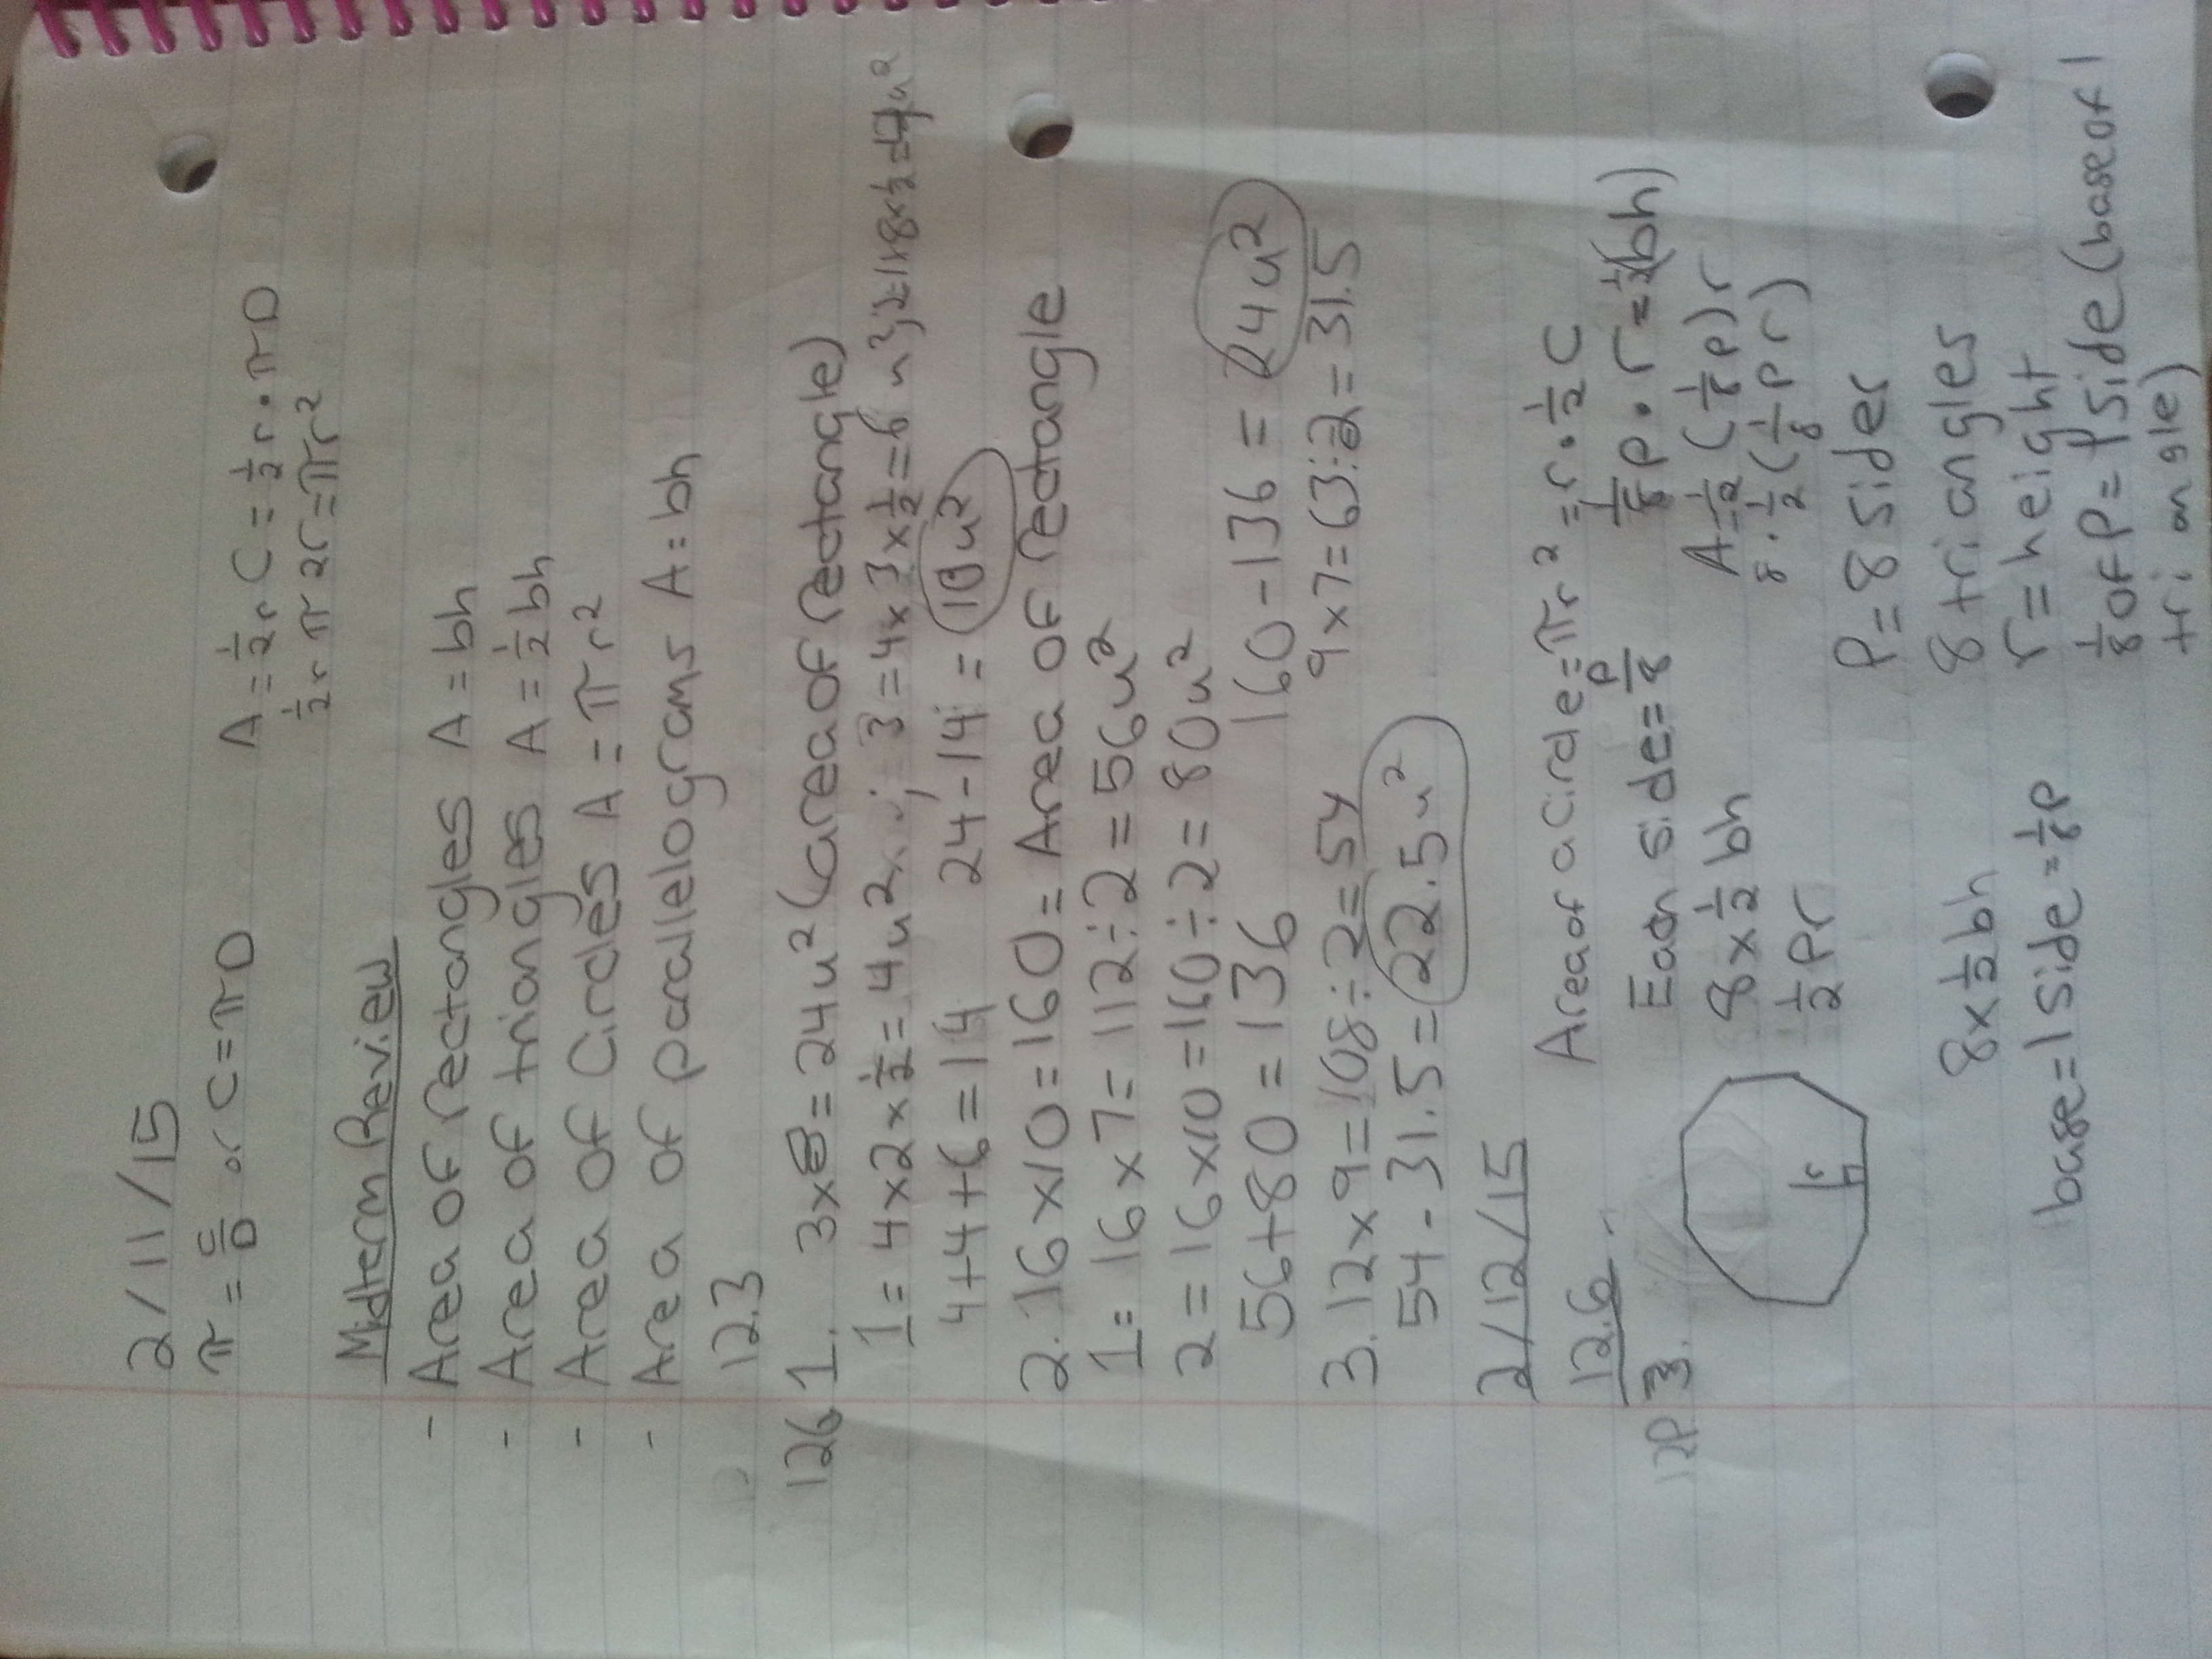 2/11/15
π = C/D or C = πD A = 1/2 r C = 1/2 r • πD
1/2 r π 2r = πr²
Midterm Review
- Area of rectangles A = bh
- Area of triangles A = 1/2 bh
- Area of Circles A = πr²
- Area of parallelograms A = bh
12.3
126 1. 3x8 = 24u² (area of rectangle)
1 = 4x2x1/2 = 4u² ; 3 = 4x3x1/2 = 6u² ; 2 = 1x8x1/2 = 4u²
4+4+6 = 14 24-14 = 10u²
2. 16x10 = 160 = Area of rectangle
1 = 16x7 = 112÷2 = 56u²
2 = 16x10 = 160÷2 = 80u²
56+80 = 136 160-136 = 24u²
3. 12x9 = 108÷2 = 54 9x7 = 63÷2 = 31.5
54-31.5 = 22.5u²
2/12/15
12.6 Area of a Circle = πr² = r • 1/2 C
12P 3. Each side = P/8 1/8 P • r = 1/2(bh)
8 x 1/2 bh A = 1/2 (1/8 P) r
1/2 Pr 8 • 1/2 (1/8 Pr)
r
P = 8 sides
8 x 1/2 bh 8 triangles
base = 1 side = 1/8 P r = height
1/8 of P = 1 side (base of 1
triangle)